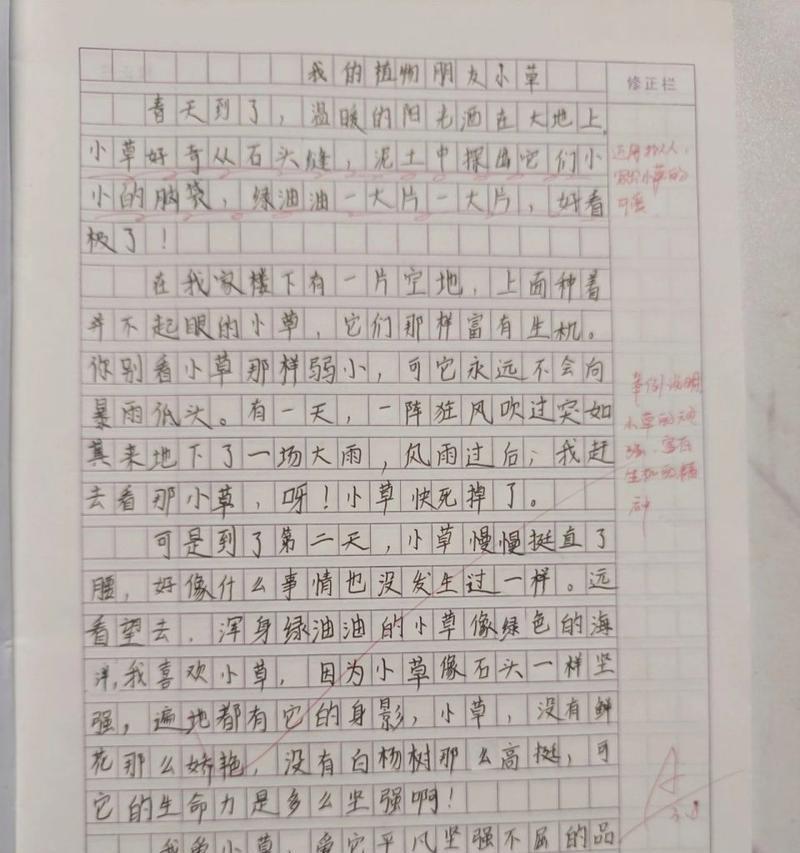 我的植物朋友小草
修正栏
春天到了，温暖的阳光洒在大地上，
小草好奇从石头缝，泥土中探出它们小
小的脑袋，绿油油一大片一大片，好看
极了！
运用拟人，
写出小草的
可爱
在我家楼下有一片空地，上面种着
并不起眼的小草，它们那样富有生机。
你别看小草那样弱小，可它永远不会向
暴雨低头。有一天，一阵狂风吹过突如
其来地下了一场大雨，风雨过后；我赶
去看那小草，呀！小草快死掉了。
举例说明
小草的顽
强，富有
生机的精
神
可是到了第二天，小草慢慢挺直了
腰，好像什么事情也没发生过一样。远
看望去，浑身绿油油的小草像绿色的海
洋，我喜欢小草，因为小草像石头一样坚
强，遍地都有它的身影，小草，没有鲜
花那么娇艳，没有白杨树那么高挺，可
它的生命力是多么坚强啊！
A
我爱小草，爱它平凡坚强不屈的品